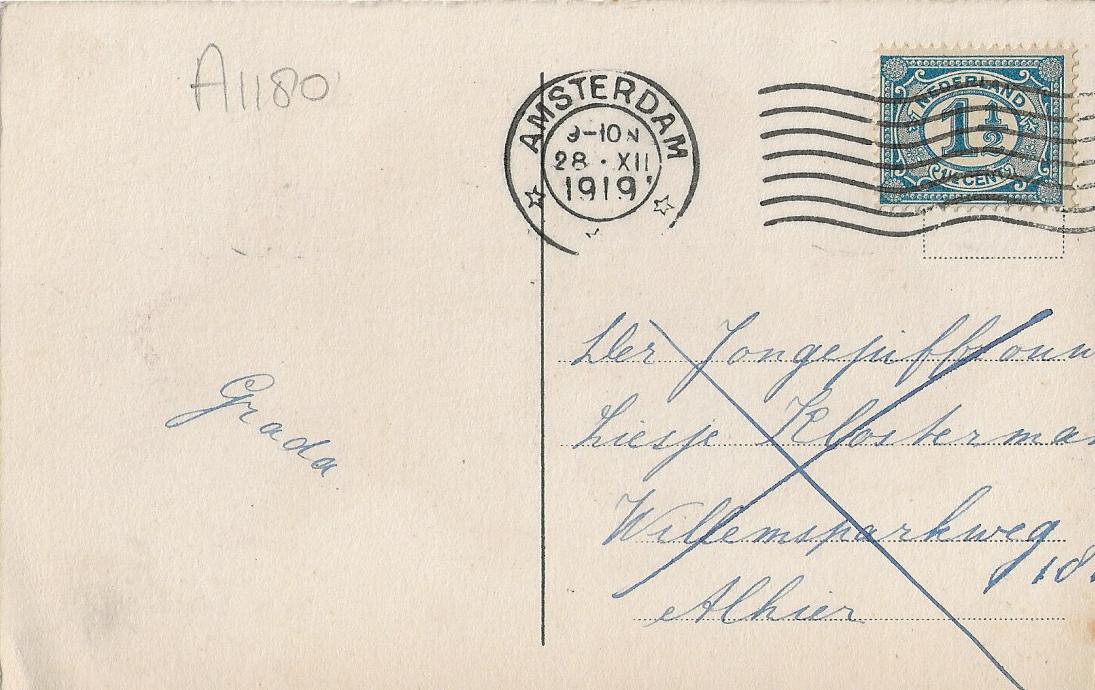 A1180
AMSTERDAM
9-10 N
28 · XII
1919
NEDERLAND
1 1/2
1½ CENT
Grada
Der Jongejuffrouw
Liesje Klosterman
Willemsparkweg
18
Alhier